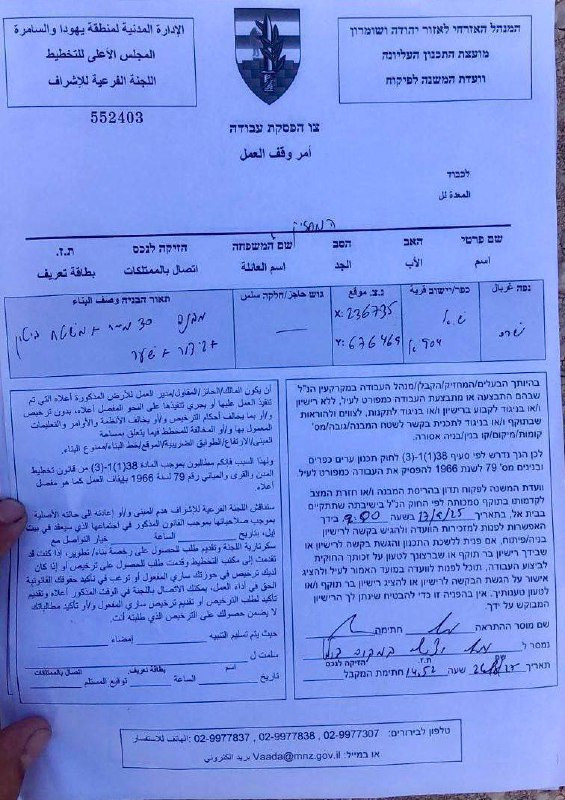 המנהל האזרחי לאזור יהודה ושומרון
מועצת התכנון העליונה
וועדת המשנה לפיקוח
الإدارة المدنية لمنطقة يهودا والسامرة
المجلس الأعلى للتخطيط
اللجنة الفرعية للإشراف
552403
צו הפסקת עבודה
أمر وقف العمل
לכבוד
שם פרטי האב הסב שם המשפחה הזיקה לנכס ת.ז.
اسم الأب الجد اسم العائلة اتصال بالممتلكات بطاقة تعريف
כפר/יישוב
נ.צ. מוקע
גוש
תאור הבניה وصف البناء
X: 236735
Y: 676469
בהיותך הבעלים/המחזיק/הקבלן/מנהל העבודה במקרקעין הנ"ל
שבהם התבצעה או מתבצעת העבודה כמפורט לעיל, ללא רישיון
ו/או בניגוד לקבוע ברישיון ו/או בניגוד לתקנות, לצווים ולהוראות
שבתוקף ו/או בניגוד לתכנית בקשר לשטח המבנה/גובה/מס'
קומות/מיקום/קו בנין/בניה אסורה.
לכן הנך נדרש לפי סעיף 38(1)(1-3) לחוק תכנון ערים כפרים
ובנינים מס' 79 לשנת 1966 להפסיק את העבודה כמפורט לעיל.
וועדת המשנה לפיקוח תדון בהריסת המבנה ו/או חזרת המצב
לקדמותו בתוקף סמכותה לפי החוק הנ"ל בישיבתה שתתקיים
בבית אל, בתאריך 13/9/25 בשעה 9:00 בידך
האפשרות לפנות למזכירות הוועדה ולהגיש בקשה לרישיון
בניה/פיתוח, אם פנית ללשכת התכנון והגשת בקשה לרישיון או
שבידך רישיון בר תוקף או שברצונך לטעון על זכותך החוקית
לביצוע העבודה, תוכל לפנות לוועדה במועד האמור לעיל ולהציג
אישור על הגשת הבקשה לרישיון או להציג רישיון בר תוקף ו/או
לטעון טענותיך. אין בהפניה זו כדי להבטיח שינתן לך הרישיון
המבוקש על ידך.
שם מוסר ההתראה חתימה
נמסר ל
ת.ז הזיקה לנכס
תאריך שעה 14:52 חתימת המקבל
أن يكون المالك/الحائز/المقاول/مدير العمل للأرض المذكورة أعلاه التي تم
تنفيذ العمل عليها أو يجري تنفيذها على النحو المفصل أعلاه، بدون ترخيص
و/أو بما يخالف أحكام الترخيص و/أو يخالف الأنظمة والأوامر والتعليمات
المعمول بها و/أو المخالفة للمخطط فيما يتعلق بمساحة
المبنى/الارتفاع/الطوابق/الموقع/خط البناء/ممنوع البناء.
ولهذا السبب فإنكم مطالبون بموجب المادة 38(1)(1-3) من قانون تخطيط
المدن والقرى والمباني رقم 79 لسنة 1966 بإيقاف العمل كما هو مفصل
أعلاه.
ستناقش اللجنة الفرعية للإشراف هدم المبنى و/أو إعادته الى حالته الأصلية
بموجب صلاحياتها بموجب القانون المذكور في اجتماعها الذي سيعقد في بيت
إيل، بتاريخ الساعة خيار التواصل مع
سكرتارية اللجنة وتقديم طلب للحصول على رخصة بناء/ تطوير، اذا كنت قد
تقدمت إلى مكتب التخطيط وقدمت طلب للحصول على ترخيص أو إذا كان
لديك ترخيص في حوزتك ساري المفعول أو ترغب في تأكيد حقوقك القانونية
الحق في أداء العمل، يمكنك الاتصال باللجنة في الوقت المذكور أعلاه وتقديم
تأكيد لطلب الترخيص أو تقديم ترخيص ساري المفعول و/أو تأكيد مطالباتك
لا يضمن حصولك على الترخيص الذي طلبته أنت.
حيث يتم تسليم التنبيه إمضاء
سلمت ل
اسم بطاقة تعريف اتصال بالممتلكات
تاريخ الساعة توقيع المستلم
טלפון לבירורים: 02-9977307 , 02-9977838 , 02-9977837 الهاتف للاستفسار:
או במייל: Vaada@mnz.gov.il بريد الكتروني